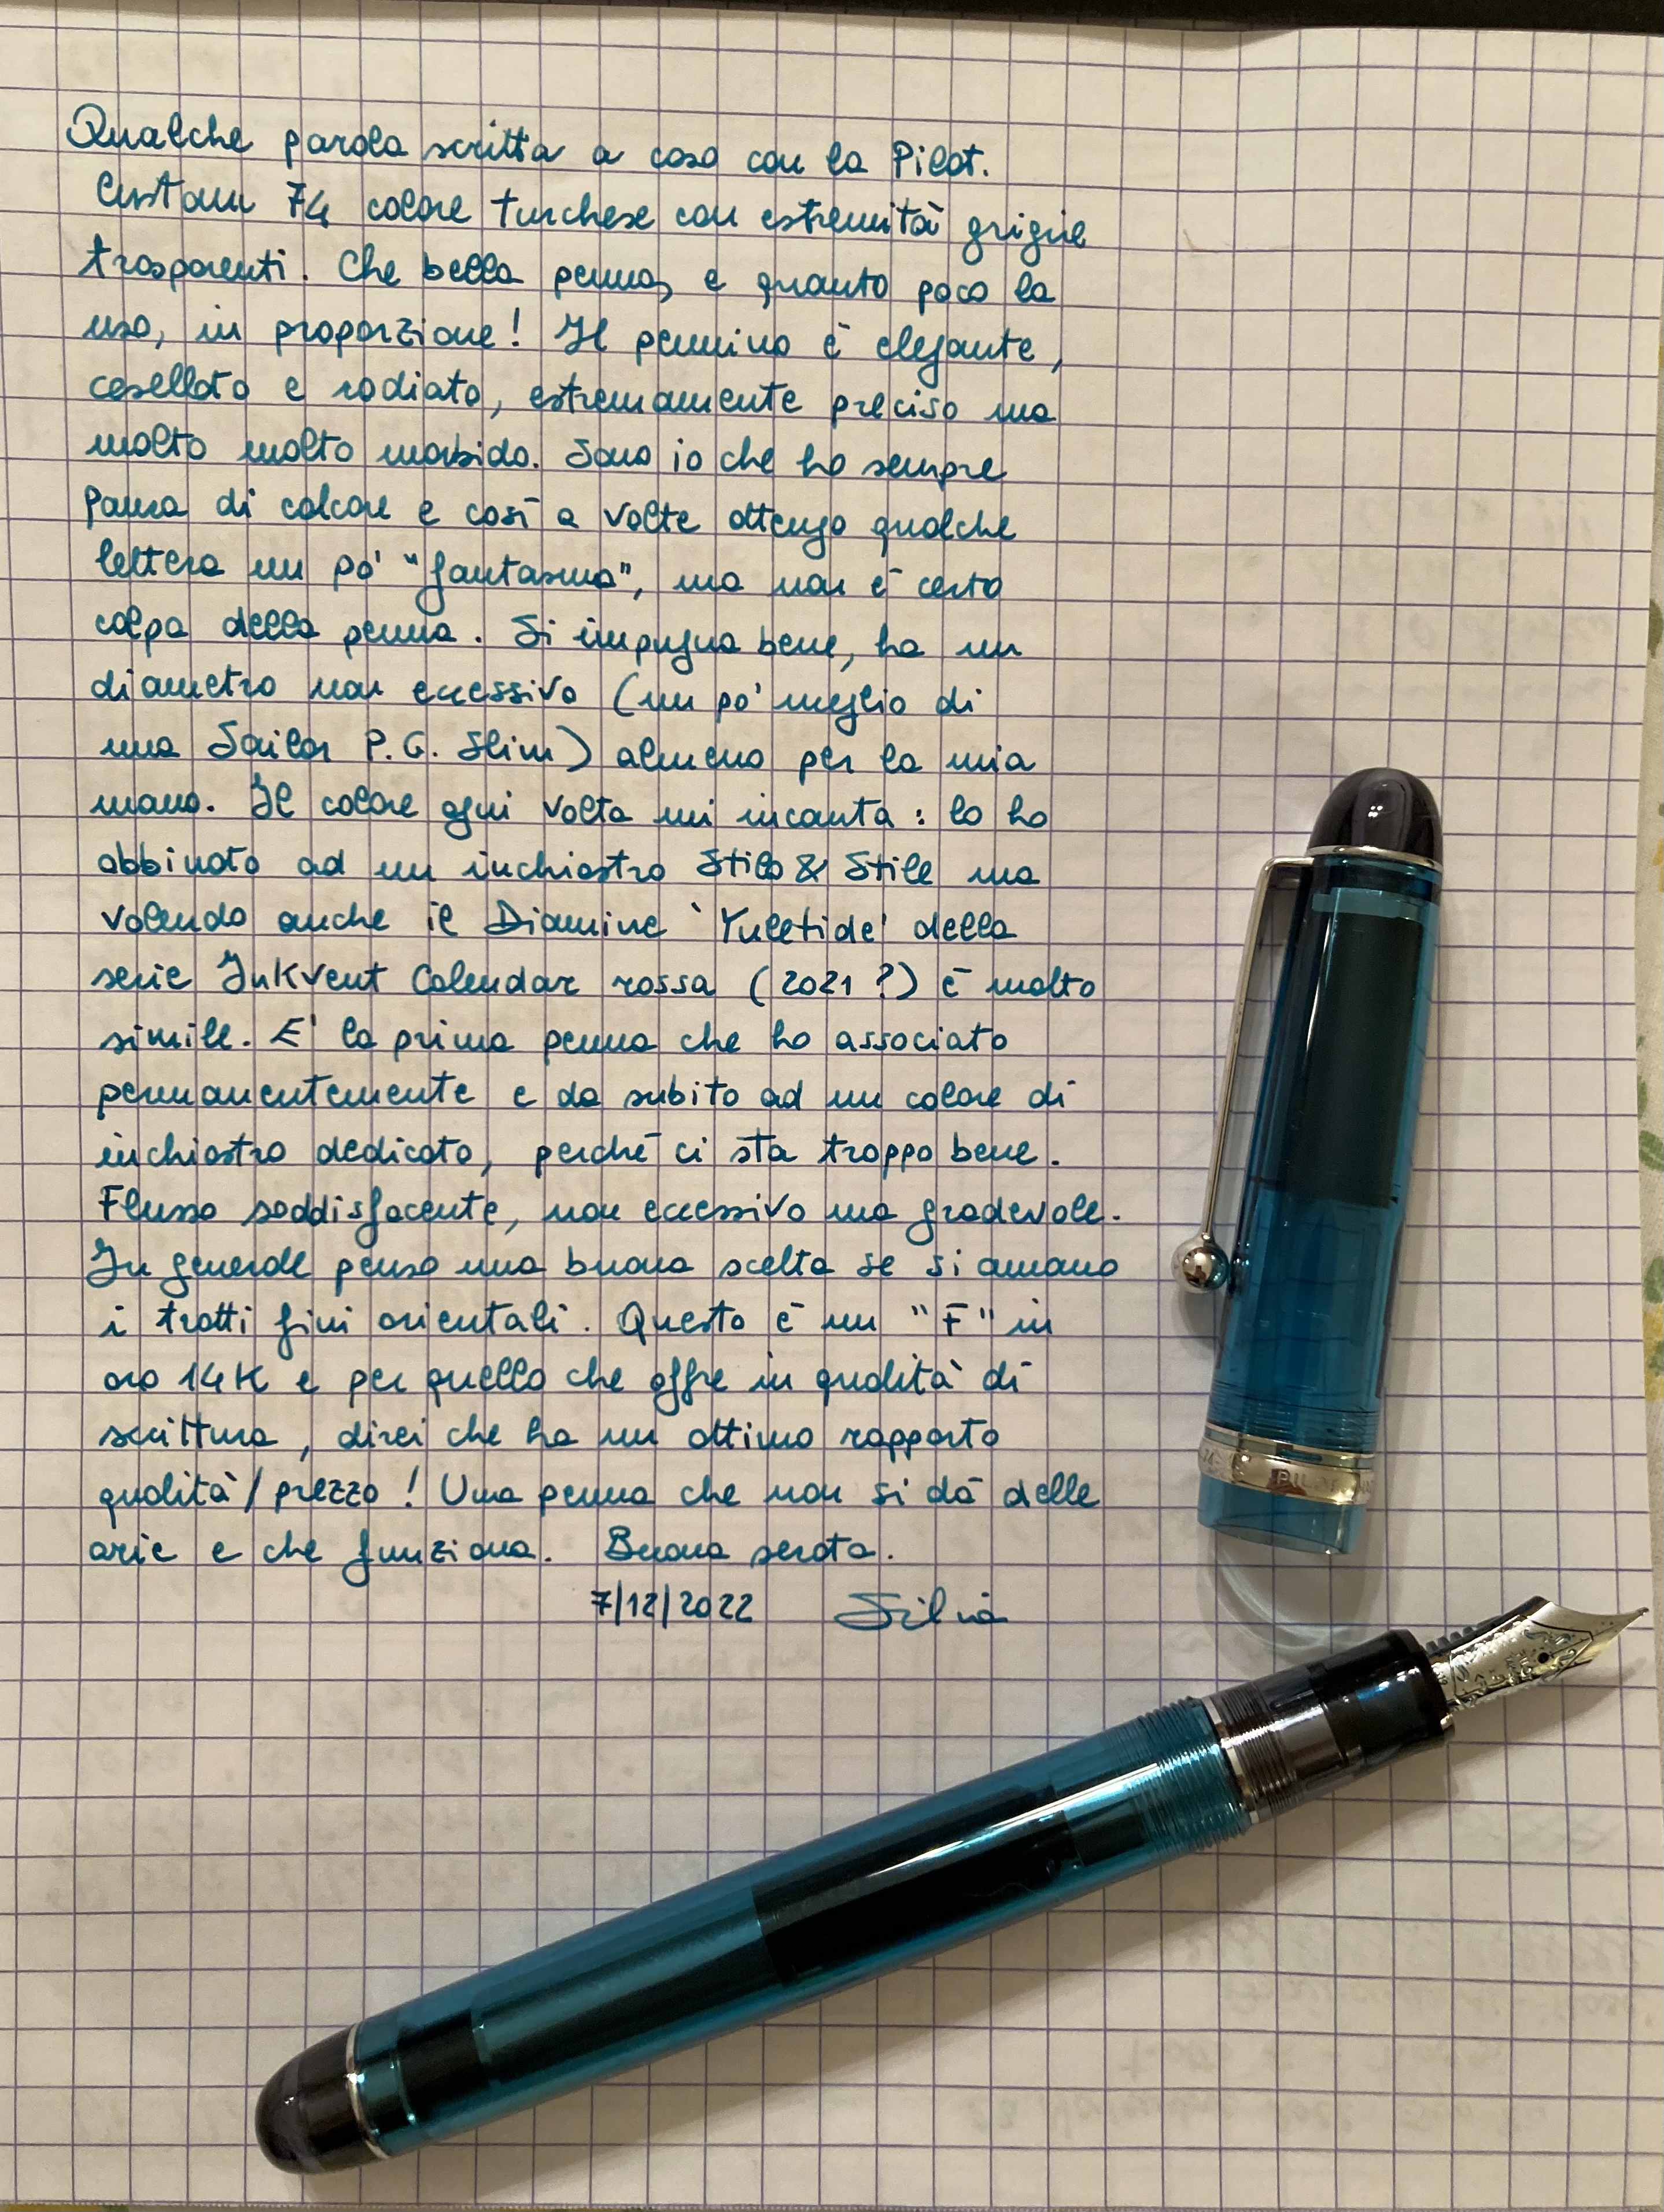 Qualche parola scritta a caso con la Pilot.
Custom 74 colore turchese con estremità grigie
trasparenti. Che bella penna, e quanto poco la
uso, in proporzione! Il pennino è elegante,
cesellato e rodiato, estremamente preciso ma
molto molto morbido. Sono io che ho sempre
paura di calcare e così a volte ottengo qualche
lettera un pò "fantasma", ma non è certo
colpa della penna. Si impugna bene, ha un
diametro non eccessivo (un pò meglio di
una Sailor P.G. Slim) almeno per la mia
mano. Il colore ogni volta mi incanta: lo ho
abbinato ad un inchiostro Stilo & Stile ma
volendo anche il Diamine 'Yuletide' della
serie InkVent Calendar rossa (2021?) è molto
simile. E' la prima penna che ho associato
permanentemente e da subito ad un colore di
inchiostro dedicato, perché ci sta troppo bene.
Flusso soddisfacente, non eccessivo ma gradevole.
In generale penso una buona scelta se si amano
i tratti fini orientali. Questo è un "F" in
oro 14K e per quello che offre in qualità di
scrittura, direi che ha un ottimo rapporto
qualità/prezzo! Una penna che non si dà delle
arie e che funziona. Buona serata.
7/12/2022 Silvia
PILOT